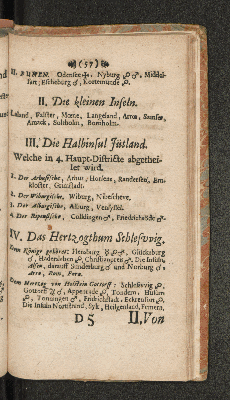 (57)
II. FÜNEN. Odensee. Nyburg Middel-
fart, Escheborg, Kortemünde
II. Die kleinen Inseln.
Laland, Falster, Mœne, Langeland, Arroe, Samsöe,
Amack, Saltholm, Bornholm.
III. Die Halbinsul Jütland.
Welche in 4. Haupt-Districte abgethei-
let wird.
1. Der Arhusische, Arhus, Horsens, Randersen, Em-
kloster, Grimstadt.
2. Der Wiburgische, Wiburg, Nibeschwe.
3. Der Alburgische, Alburg, Vensyssel.
4. Der Ripensische, Coldingen, Friedrichsode
IV. Das Hertzogthum Schleßvvig.
Dem Könige gehöret: Flensburg, Glücksburg
Hadersleben, Christianpreis, Die Insuln
Alsen, darauff Sunderburg und Norburg
Arro, Rom, Fora.
Dem Hertzog von Holstein Gottorff: Schleßvvig
Gottorff, Appenrade, Tondern, Husum
Tonningen, Fridrichstadt, Eckernföh
Die Insuln Nortstrand, Sylt, Heilgenland, Femern.
D 5 II. Von